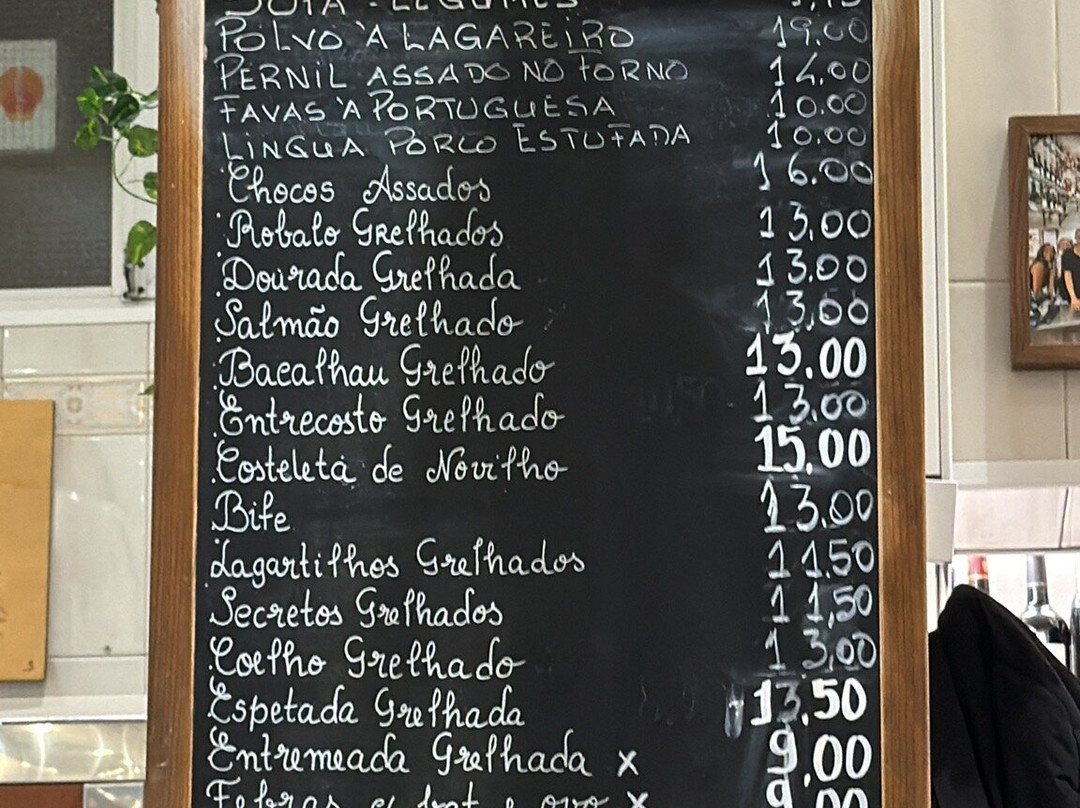 SOPA - LEGUMES
POLVO À LAGAREIRO 19,00
PERNIL ASSADO NO FORNO 14,00
FAVAS À PORTUGUESA 10.00
LINGUA PORCO ESTUFADA 10.00
Chocos Assados 16.00
Robalo Grelhados 13,00
Dourada Grelhada 13,00
Salmão Grelhado 13,00
Bacalhau Grelhado 13.00
Entrecosto Grelhado 13,00
Costeleta de Novilho 15,00
Bife 13,00
Lagartilhos Grelhados 11,50
Secretos Grelhados 11,50
Coelho Grelhado 13,00
Espetada Grelhada 13,50
Entremeada Grelhada x 9,00
Febras c/ bat e ovo x 9,00